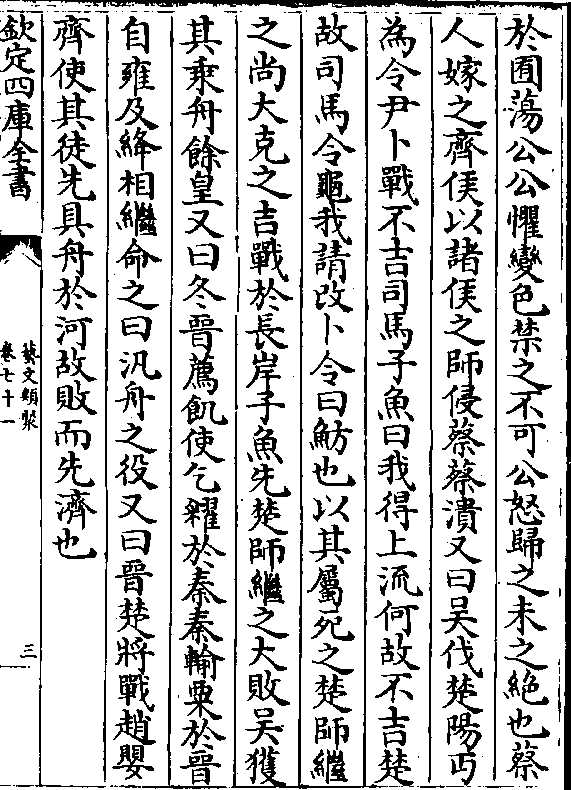 於囿蕩公公懼變色禁之不可公怒歸之未之絶也蔡
人嫁之齊侯以諸侯之師侵蔡蔡潰又曰吴伐楚陽丐
為令尹卜戰不吉司馬子魚曰我得上流何故不吉楚
故司馬令龜我請改卜令曰魴也以其屬死之楚師繼
之尚大克之吉戰於長岸子魚先楚師繼之大敗吴獲
其乘舟餘皇又曰冬晉薦飢使乞糴於秦秦輸粟於晉
自雍及絳相繼命之曰汎舟之役又曰晉楚將戰趙嬰
齊使其徒先具舟於河故敗而先濟也
欽定四庫全書
藝文類聚
卷七十一
三